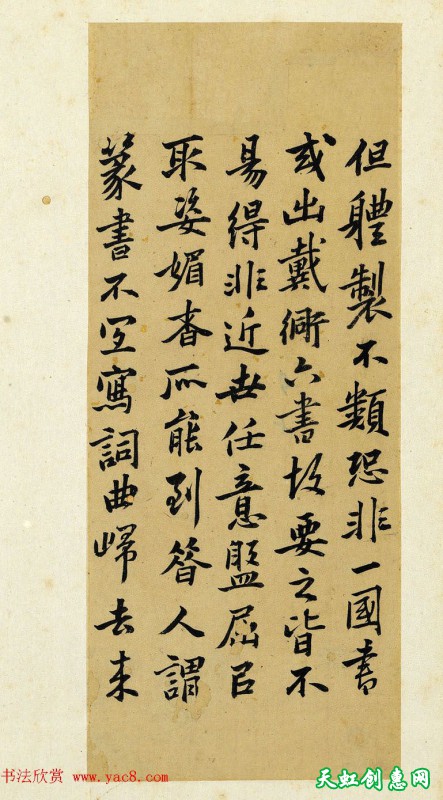 但軆製不類恐非一國書
或出戴衕六書故要之皆不
易得非近世任意盤屈㠯
取姿媚者所能到昔人謂
篆書不宜寫詞曲歸去来
书法欣赏 www.yac8.com
天虹创惠网